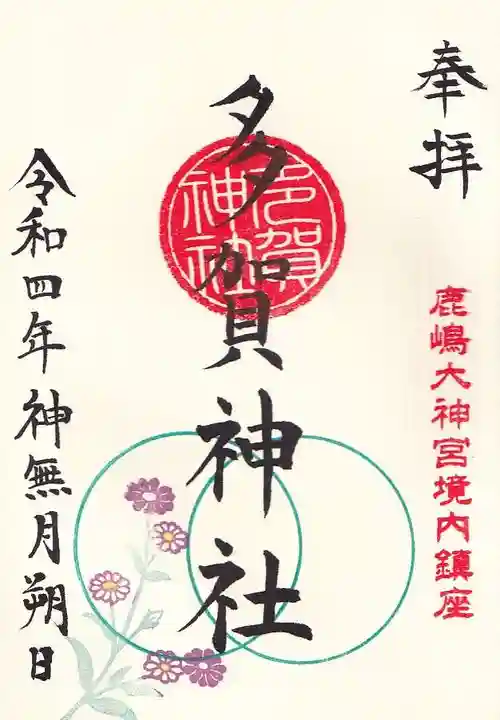 奉拝
鹿嶋大神宮境内鎮座
多賀神社
多賀神社
令和四年神無月朔日